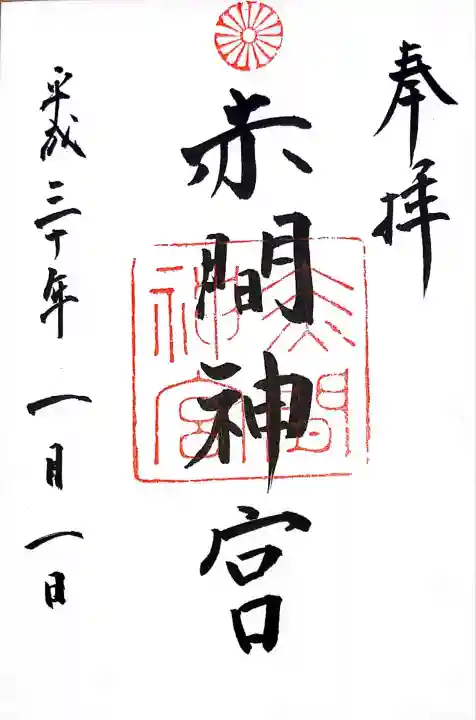 奉拝
赤間神宮
赤間神宮
平成三十年一月一日